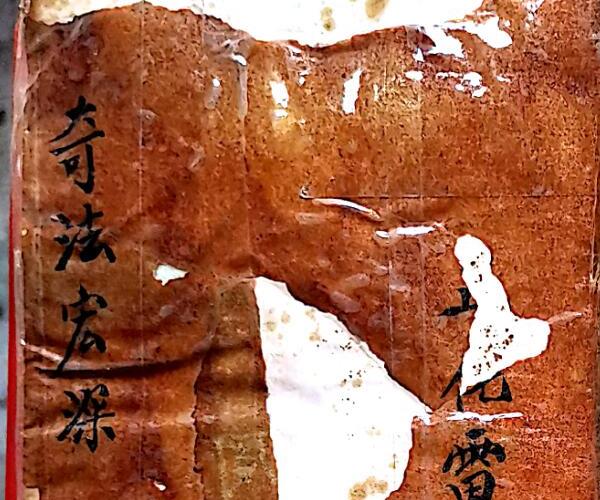 化雷
奇法宏深